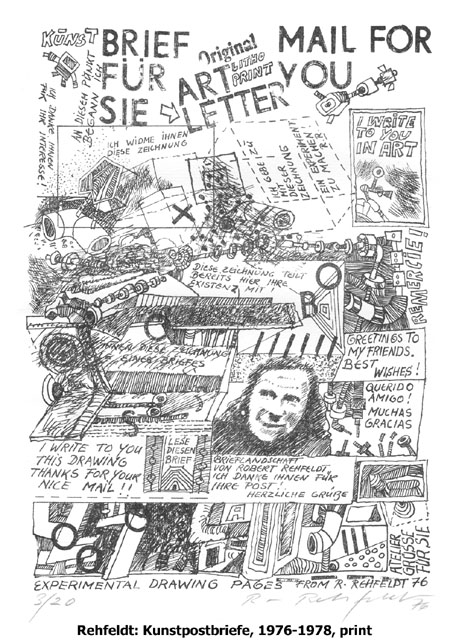 KUNST
BRIEF
FÜR
SIE
Original
LITHO
PRINT
ART
LETTER
MAIL FOR
YOU
AN DIESEN PUNKT
BEGANN ICH
ICH DANKE IHNEN
FÜR IHR INTERESSE!
ICH WIDME IHNEN
DIESE ZEICHNUNG
I WRITE
TO YOU
IN ART
ICH GEBE ZU
MIT DIESER
ZEICHNUNG
DIESE ZEICHNUNG TEILT
BEREITS HIER IHRE
EXISTENZ MIT
REMERCIE!
DIESE ZEICHNUNG
EINES BRIEFES
GREETINGS TO
MY FRIENDS.
BEST
WISHES!
QUERIDO
AMIGO!
MUCHAS
GRACIAS
I WRITE TO YOU
THIS DRAWING
THANKS FOR YOUR
NICE MAIL!!
LESE
DIESEN
BRIEF
BRIEFLANDSCHAFT
VON ROBERT REHFELDT.
ICH DANKE IHNEN FÜR
IHRE POST!
HERZLICHE GRÜßE
ATELIER
GRÜSSE
FÜR SIE
EXPERIMENTAL DRAWING PAGES FROM R. REHFELDT 76
3/20
R - Rehfeldt 76
Rehfeldt: Kunstpostbriefe, 1976-1978, print